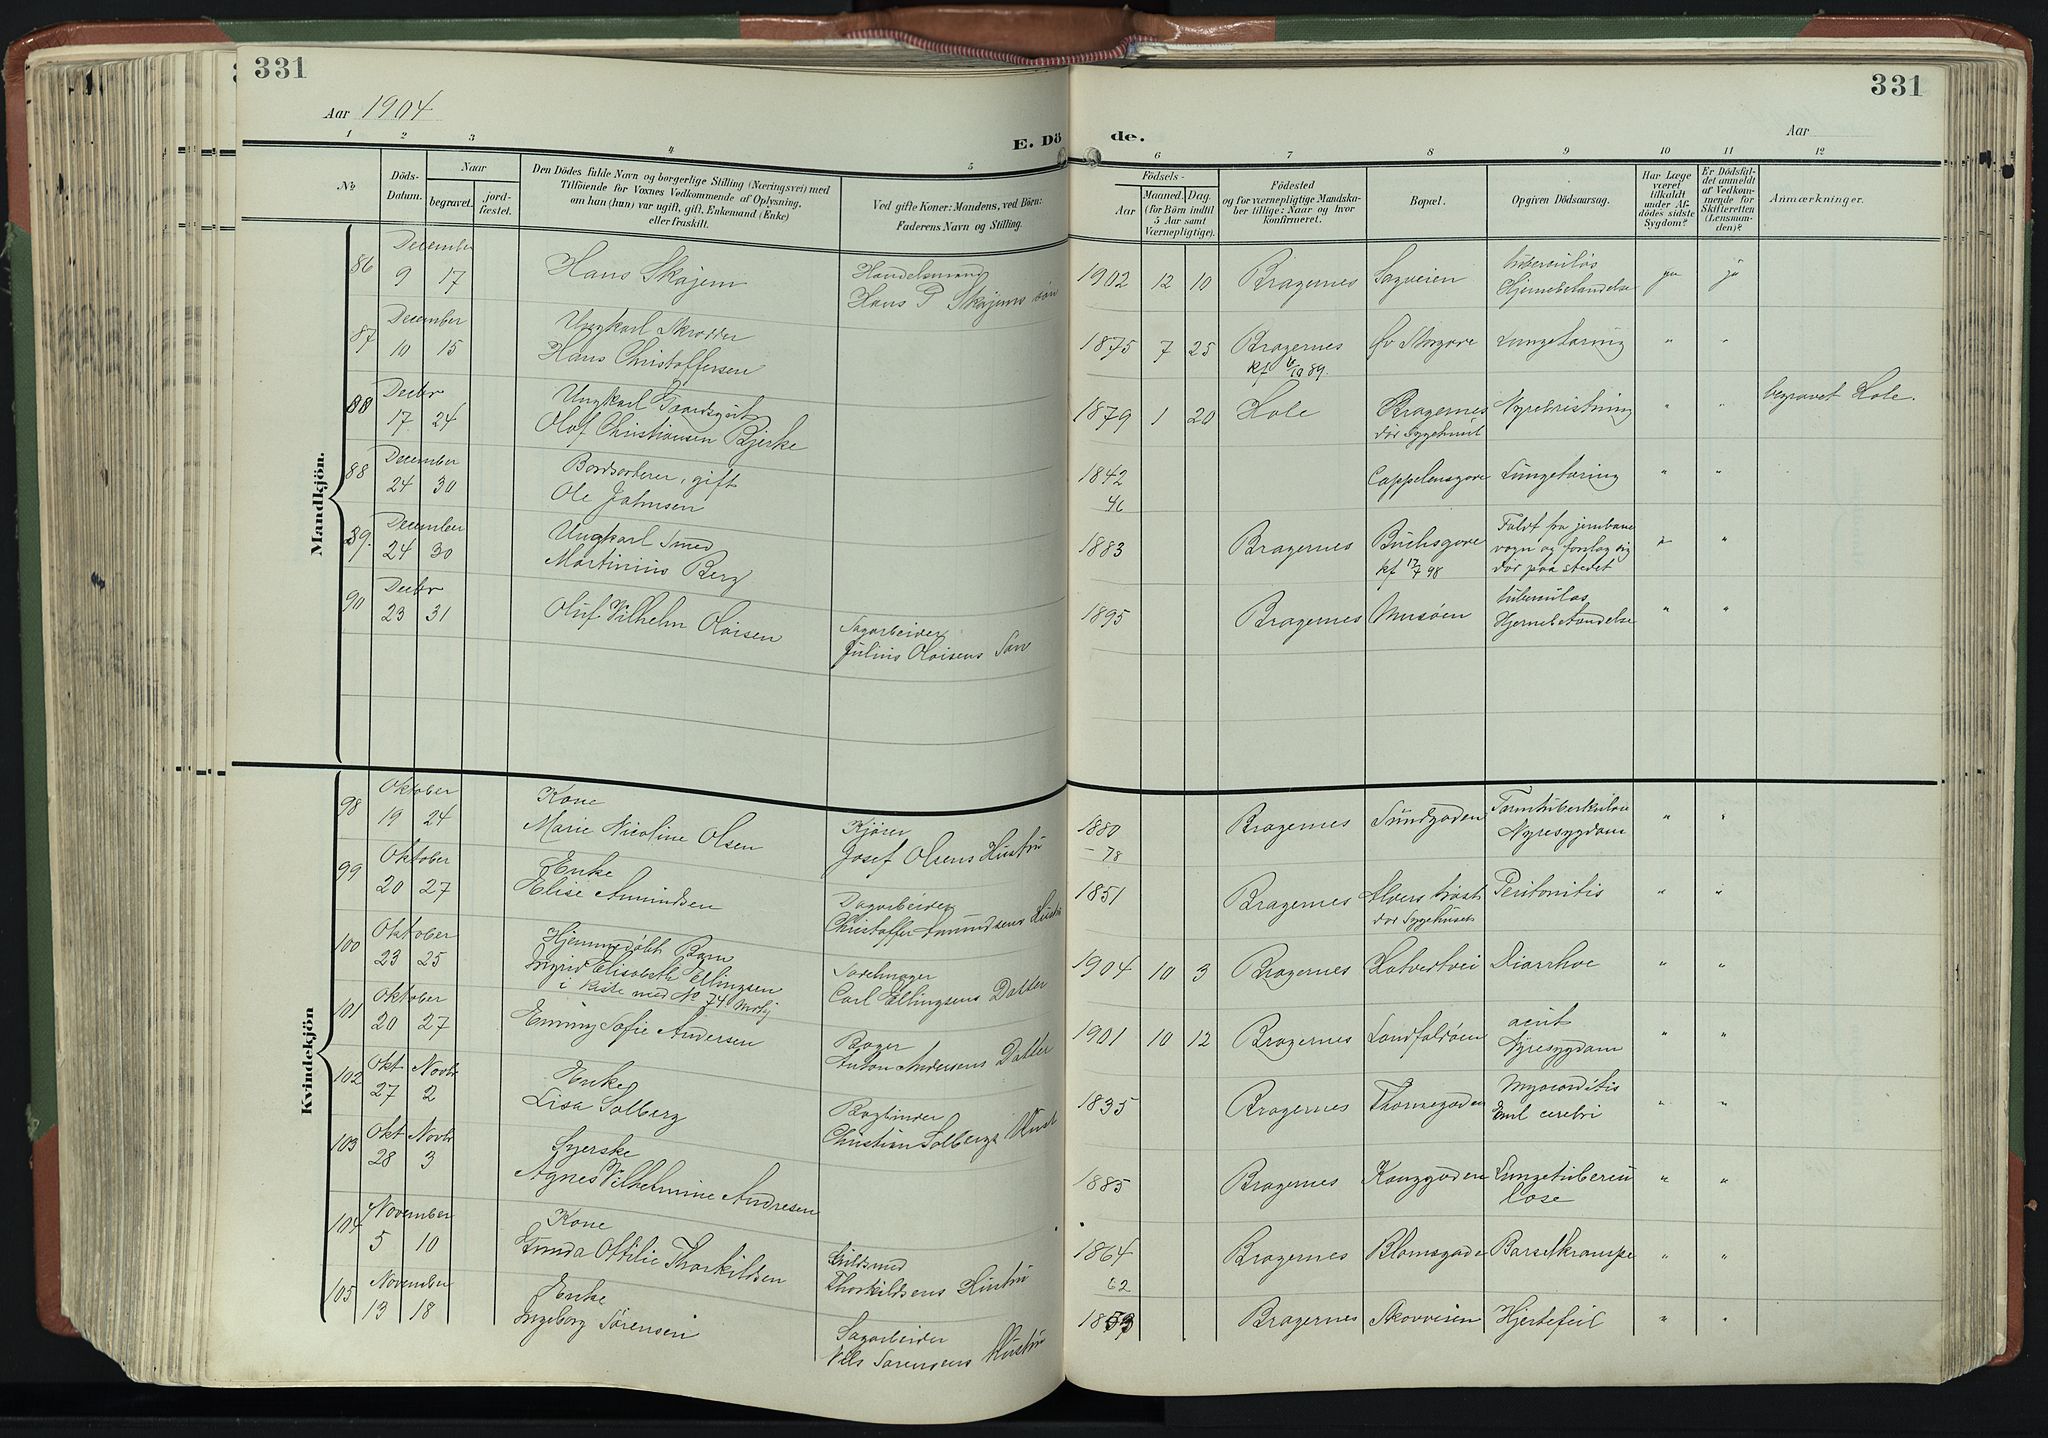 331
331
Aar 1904
E. Dö
de.
Aar
1 2 3 4 5 6 7 8 9 10 11 12
No
Döds-
Datum.
Naar
begravet.
jord-
fæstet.
Den Dödes fulde Navn og borgerlige Stilling (Næringsvei) med
Tilföiende for Voxnes Vedkommende af Oplysning,
om han (hun) var ugift, gift, Enkemand (Enke)
eller fraskilt.
Ved gifte Koner: Mandens, ved Börn:
Faderens Navn og Stilling.
Födsels-
Aar
Maaned.
Dag.
(for Börn indtil
5 Aar samt
Værnepligtige).
Födested
og for værnepligtige Mandska-
ber tillige: Naar og hvor
konfirmeret.
Bopæl.
Opgiven Dödsaarsag.
Har Læge
været
tilkaldt
under Af-
dödes sidste
Sygdom?
Er Dödsfal-
det anmeldt
af Vedkom-
mende for
Skifteretten
(Lensman-
den)?
Anmærkninger.
Mandkjön.
86
December
9 17
Hans Skajem
Handelsmand
Hans P Skajems søn
1902 12 10
Bragernes
Sagveien
tuberculøs
Hjernebetændelse
ja
ja
87
December
10 15
Ungkarl Skrædder
Hans Christoffersen
1875 7 25
Bragernes
kf 6/10 89.
Øv Storgade
Lungetæring
" "
88
Decbr
17 24
Ungkarl Gaardsgut
Olaf Christiansen Bjerke
1879 1 20
Hole
Bragernes
dør Sygehuset
" "
begravet Hole.
88
December
24 30
Bordsorterer, gift
Ole Johnsen
1842
46
Cappelensgade
Lungetæring
" "
89.
December
24 30
Ungkarl Smed
Martinius Berg
1883
Bragernes
Buchsgade
kf 17/4 98
Faldt fra jernbane
vogn og forslog sig
dør paa stedet
" "
90
Decbr
23 31
Oluf Vilhelm Olaisen
Sagarbeider
Julius Olaisens Søn
1895
Bragernes
Musøen
tuberculøs
Hjernebetændelse
" "
Kvindekjön
98
Oktober
19 24
Kone
Marie Nicoline Olsen
Kjører
Josef Olsens Hustru
1880
-78
Bragernes
Sundgaden
Tarmtuberkulose
Nyresygdom
" "
99
Oktober
20 27
Enke
Elise Amundsen
Dagarbeider
Christoffer Amundsens Hustru
1851
Bragernes
Alvers trøst
dør Sygehuset
Peritonitis
" "
100
Oktober
23 25
Hjemmedøbt Barn
Ingrid Elisabeth Ellingsen
i kiste med No 74
Sadelmager
Carl Ellingsens Datter
1904 10 3
Bragernes
Hotvertvei
Diarrhoe
" "
101
Oktober
20 27
Emmy Sofie Andersen
Bager
Anton Andersens Datter
1901 10 12
Bragernes
Landfaldøen
acut
Nyresygdom
" "
102
Okt Novbr
27 2
Enke
Lisa Solberg
Bogbinder
Christian Solbergs Hust
1835
Bragernes
Thornegaden
Myocarditis
Embl cerebri
" "
103
Okt Novbr
28 3
Syerske
Agnes Vilhelmine Andresen
1885
Bragernes
Kongegaden
Lungetubercu
lose
" "
104
November
5 10
Kone
Gunda Ottilie Thorkildsen
Guldsmed
Thorkildsens Hustru
1864
62
Bragernes
Blomsgade
Barselkrampe
" "
105
November
13 18
Enke
Ingeborg Sørensen
Sagarbeider
Nels Sørensens Hustru
Bragernes
Skovveien
Hjertefeil
" "